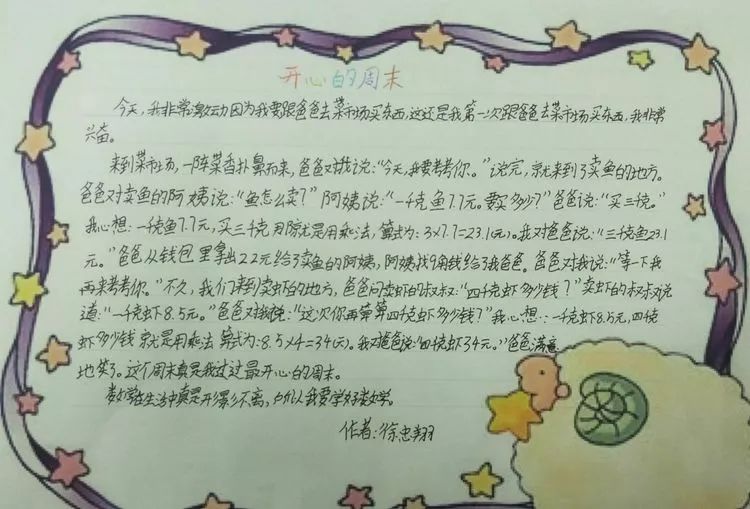 开心的周末
今天,我非常激动因为我要跟爸爸去菜市场买东西,这还是我第一次跟爸爸去菜市场买东西,我非常
兴奋。
来到菜市场,一阵菜香扑鼻而来,爸爸对我说:“今天,我要考考你。”说完,就来到了卖鱼的地方。
爸爸对卖鱼的阿姨说:“鱼怎么卖?”阿姨说:“一千克鱼7.7元。要买多少?”爸爸说:“买三千克。”
我心想:一千克鱼7.7元,买三千克用就是用乘法,算式为:3×7.7=23.1(元)。我对爸爸说:“三千克鱼23.1
元。”爸爸从钱包里拿出22元给了卖鱼的阿姨,阿姨找9角钱给了我爸爸。爸爸对我说:“等一下我
再来考考你。”不久,我们来到卖虾的地方,爸爸问卖虾的叔叔:“四千克虾多少钱?”卖虾的叔叔说
道:“一千克虾8.5元。”爸爸又对我说:“这次你再算算四千克虾多少钱?”我心想:一千克虾8.5元,四千克
虾多少钱就是用乘法算式为:8.5×4=34(元)。我对爸爸说:“四千克虾34元。”爸爸满意
地笑了。这个周末真是我过过最开心的周末。
数学在生活中真是形影不离,所以我要学好数学。
作者:徐忠翔